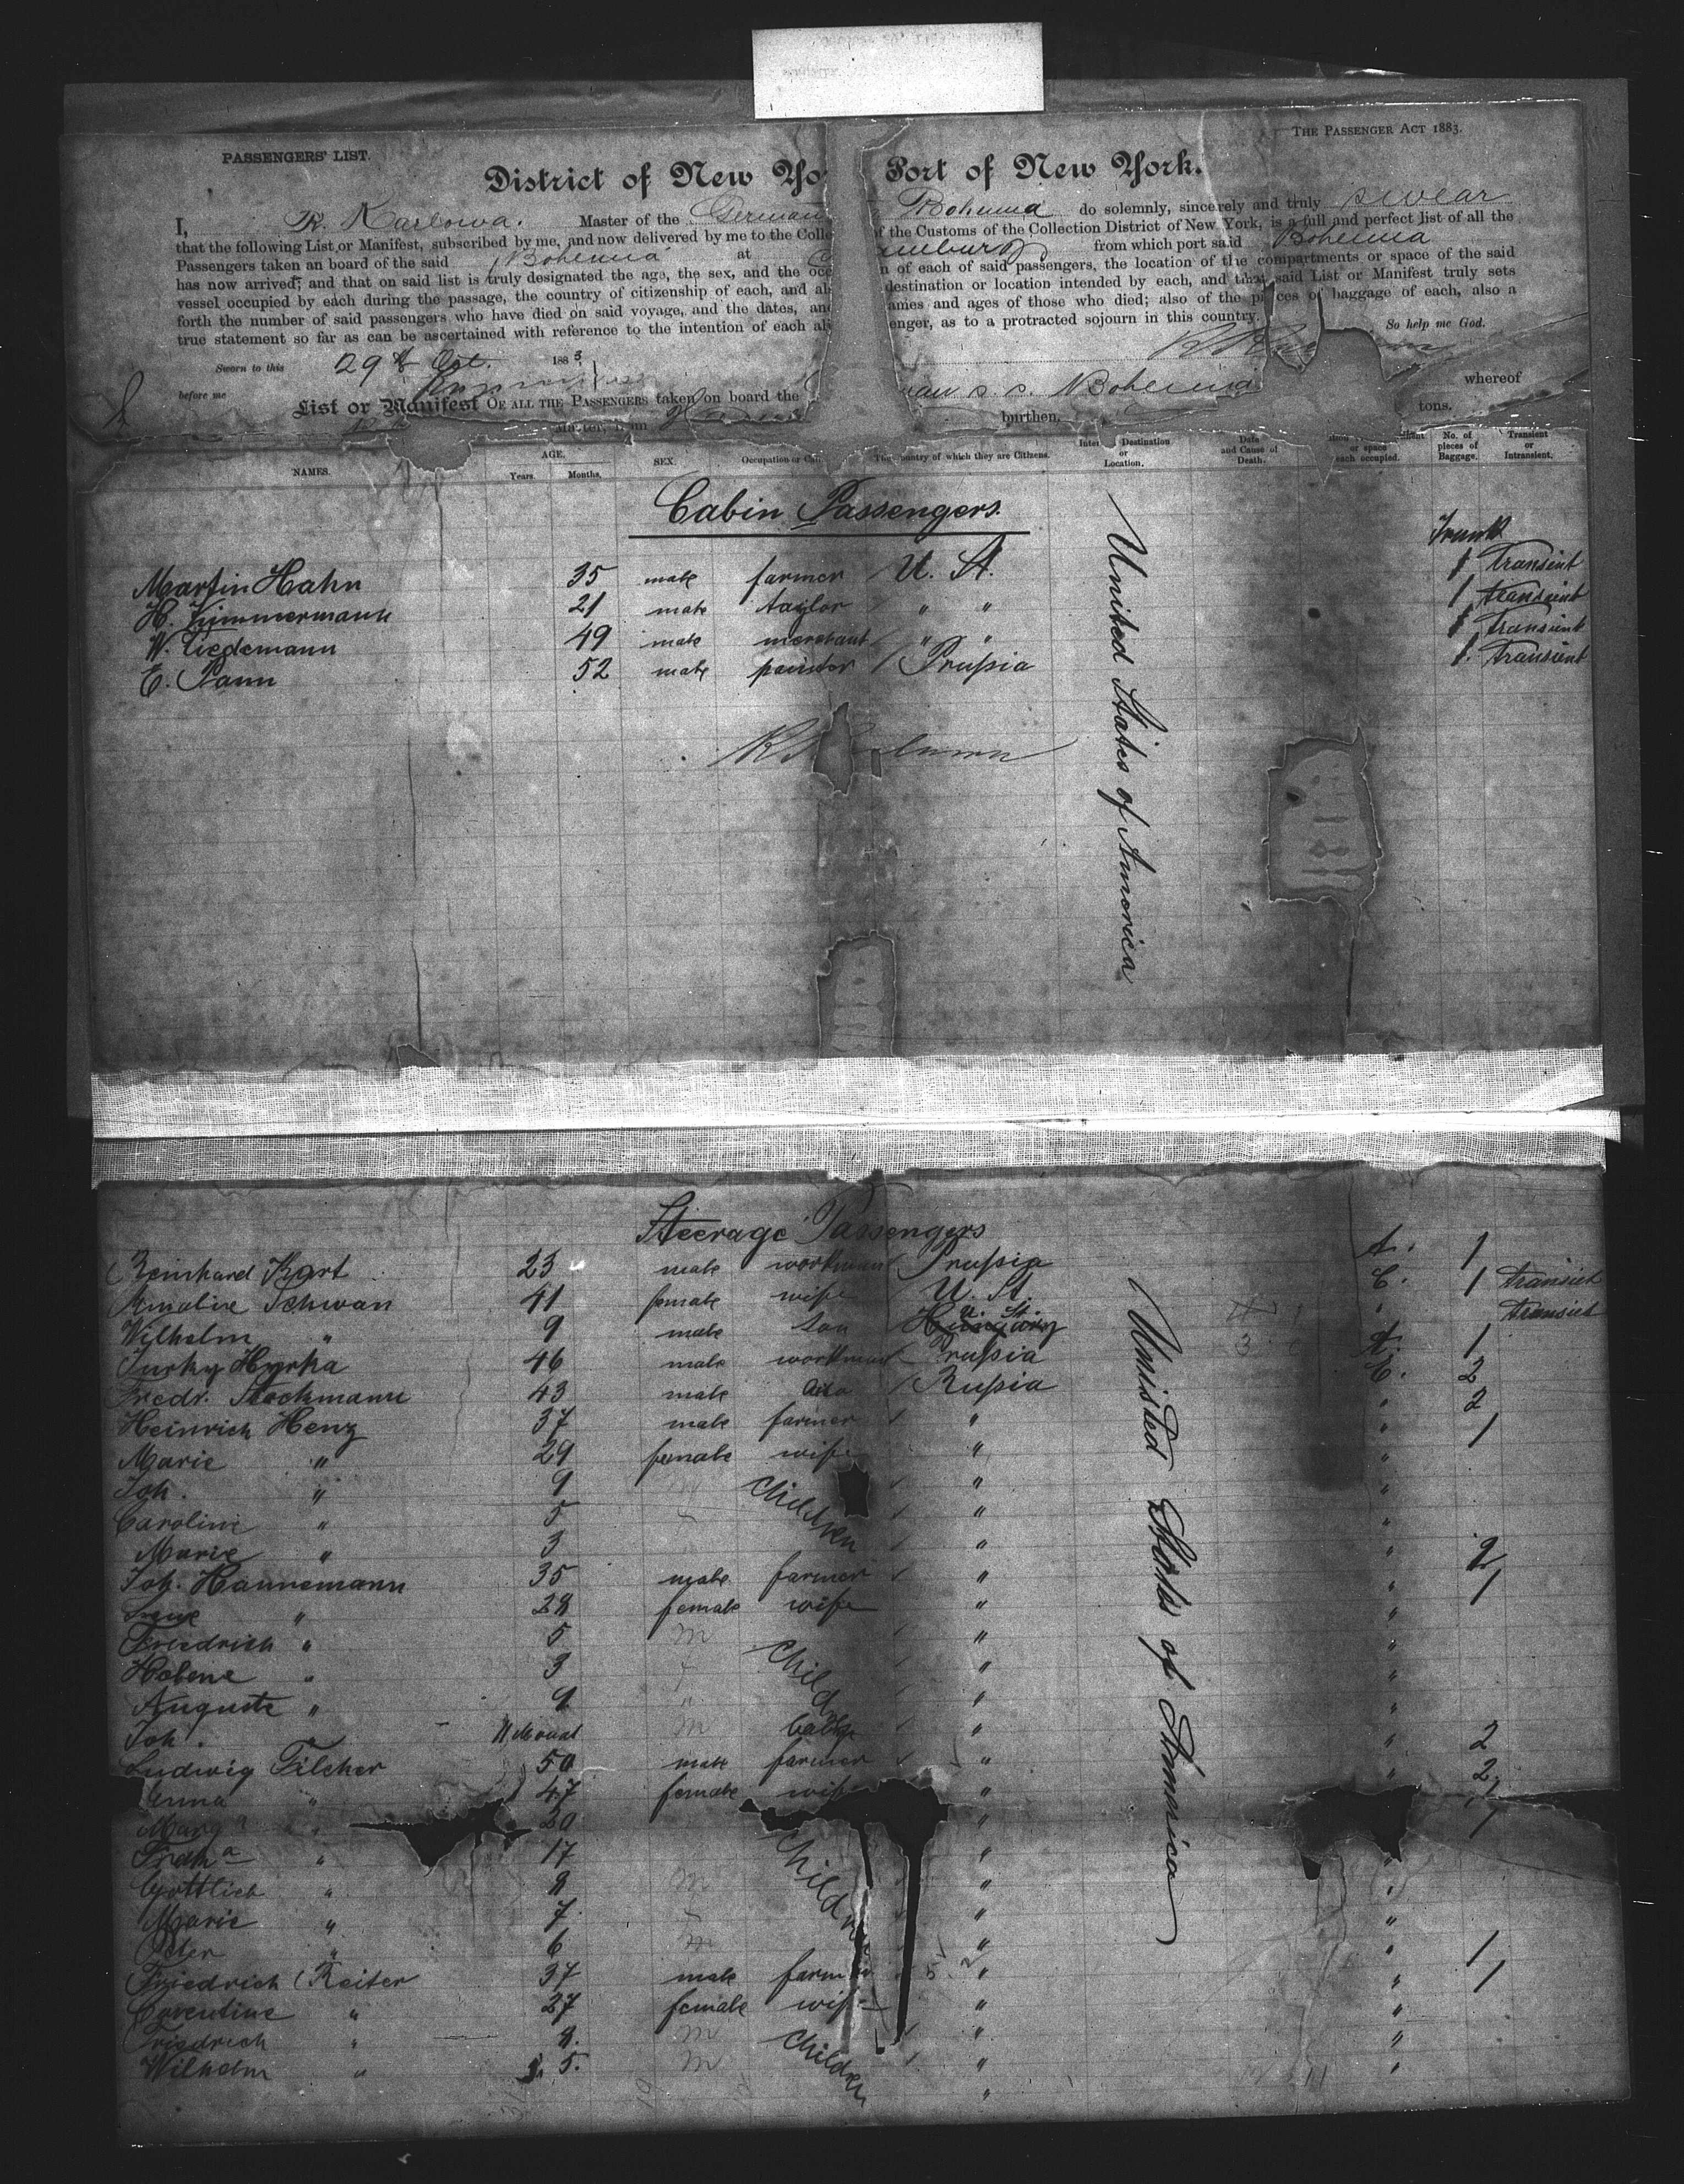 THE PASSENGER ACT 1883.
PASSENGERS' LIST.
District of New Yo Port of New York.
I, R. Karlowa. Master of the German Bohemia do solemnly, sincerely and truly swear
that the following List or Manifest, subscribed by me, and now delivered by me to the Colle of the Customs of the Collection District of New York, is a full and perfect list of all the
Passengers taken an board of the said Bohemia at from which port said Bohemia
has now arrived; and that on said list is truly designated the age, the sex, and the occ n of each of said passengers, the location of the compartments or space of the said
vessel occupied by each during the passage, the country of citizenship of each, and al destination or location intended by each, and that said List or Manifest truly sets
forth the number of said passengers who have died on said voyage, and the dates, and ames and ages of those who died; also of the pieces of baggage of each, also a
true statement so far as can be ascertained with reference to the intention of each ali enger, as to a protracted sojourn in this country. So help me God.
Sworn to this 29th Oct. 1883
before me
List or Manifest OF ALL THE PASSENGERS taken on board the s. s. Bohemia whereof
Master, from burthen, tons.
NAMES. AGE. Years. Months. SEX Occupation or Cal The Country of which they are Citizens. Destination or Location. Date and Cause of Death. or space each occupied. No. of pieces of Baggage. Transient or Intransient.
Cabin Passengers.
Trunk
Martin Hahn 35 male farmer U. St. 1 transient
H. Zimmermann 21 male taylor " " 1 transient
W. Tiedemann 49 male merchant " " 1 transient
E. Pann 52 male painter Prussia 1. transient
United States of America
Steerage Passengers
Reinhard Kort 23 male workman Prussia A. 1
Amalire Schwan 41 female wife U. St. C. 1 transient
Wilhelm " 9 male son Hungary U. St. " transient
Jurky Hyrka 46 male workman Prussia A. 1
Fredr. Stockmann 43 male dito Russia C. 2
Heinrich Henz 37 male farmer " " 2
Marie " 29 female wife " " 1
Joh. " 9 m children " "
Caroline " 5 f " "
Marie " 3 " "
Joh. Hannemann 35 male farmer " " 2
" 28 female wife " " 1
Friedrich " 5 m Child " "
Helene " 3 f " "
Auguste " 9 " " "
Joh. " 11 Monat m baby " "
Ludwig Filcher 50 male farmer " " 2
Anna " 47 female wife " " 2
Marg " 20 Children " 1
Fridk " 17 " "
Gottlieb " 8 m " "
Marie " 7 f " "
Peter " 6 m " "
Friedrich Reiter 37 male farmer " " 1
" 27 female wife " " 1
Friedrich " 8. m Children " "
Wilhelm " 5. m " "
"
Unisted Stats of America